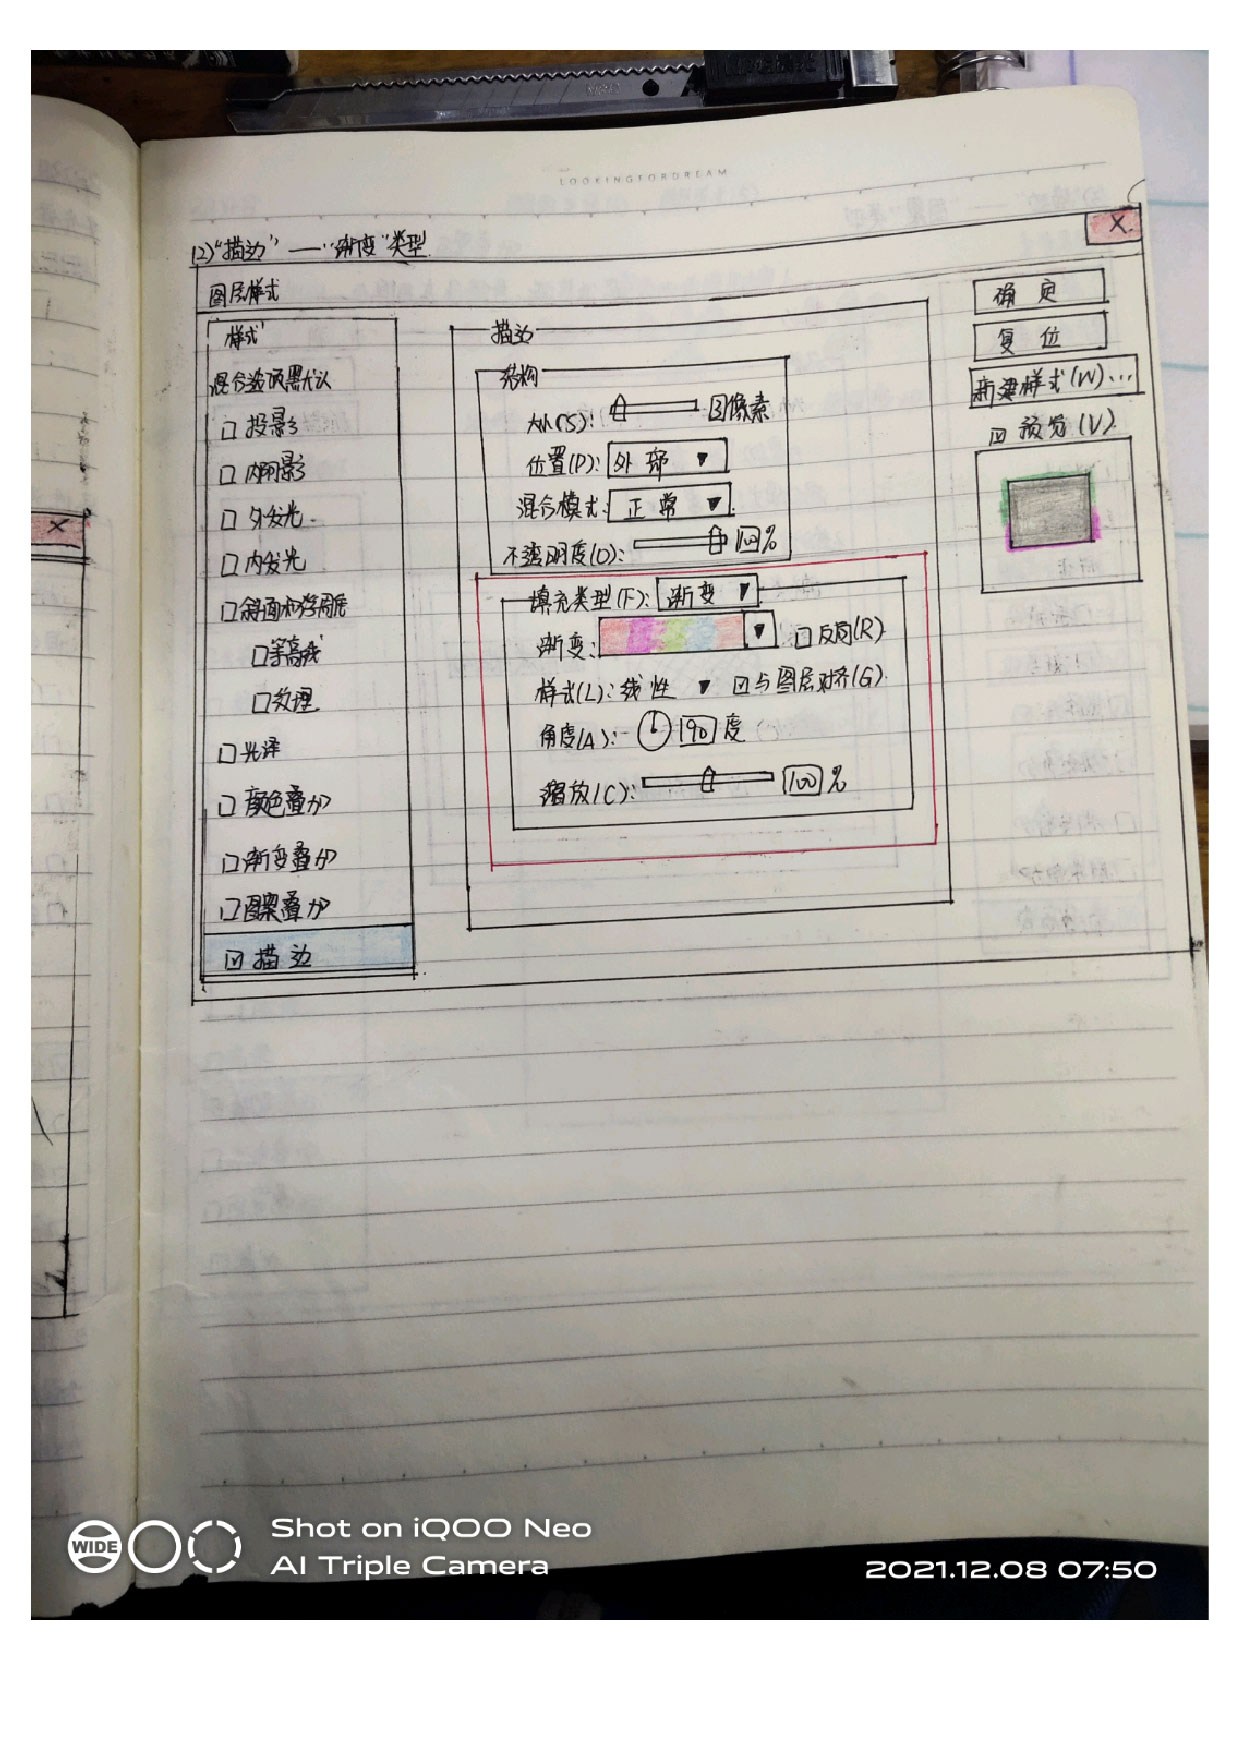 LOOKINGFORDREAM
(2)"描边"——"渐变"类型
X
图层样式
样式
混合选项:默认
投影
内阴影
外发光
内发光
斜面和浮雕
等高线
纹理
光泽
颜色叠加
渐变叠加
图案叠加
描边
描边
结构
大小(S): 像素
位置(P): 外部
混合模式: 正常
不透明度(O): 100%
填充类型(F): 渐变
渐变: 反向(R)
样式(L): 线性 与图层对齐(G)
角度(A): 90 度
缩放(C): 100 %
确定
复位
新建样式(W)...
预览(V)
X
WIDE
Shot on iQOO Neo
AI Triple Camera
2021.12.08 07:50